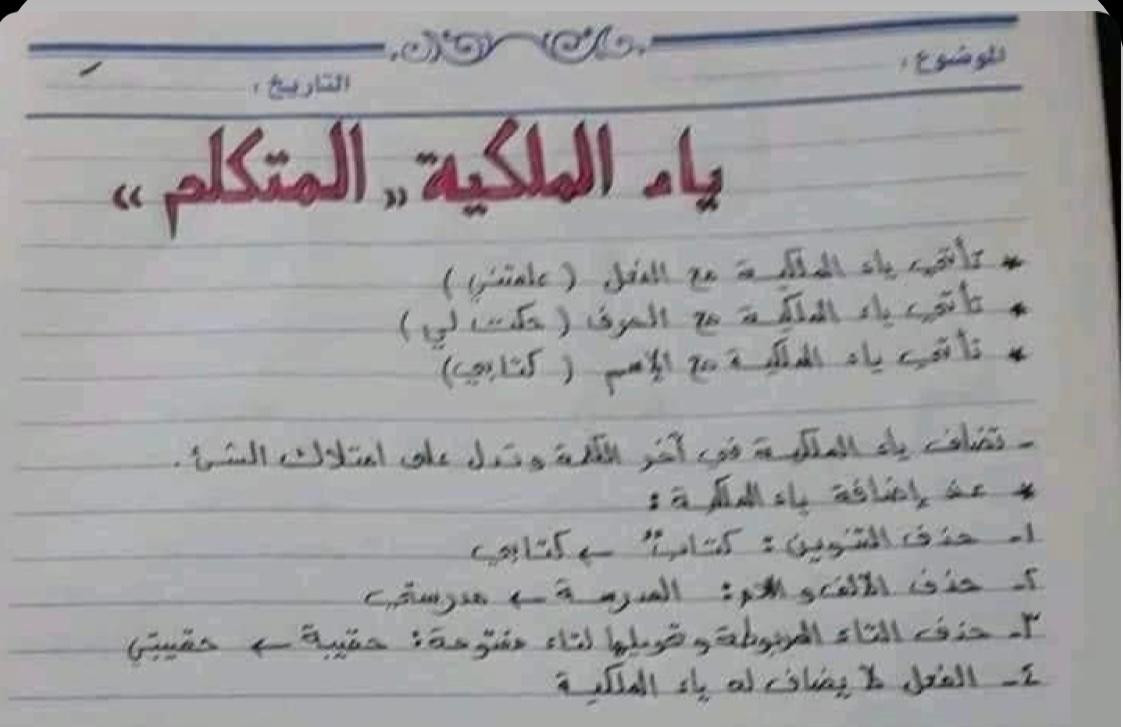 الموضوع :
التاريخ :
ياء الملكية "المتكلم"
* تأتي ياء الملكية مع الفعل ( علمتني )
* تأتي ياء الملكية مع الحرف ( حكت لي )
* تأتي ياء الملكية مع الإسم ( كتابي )
- تضاف ياء الملكية في آخر الكلمة وتدل على امتلاك الشئ .
* عند إضافة ياء الملكية :
١- حذف التنوين : كتابٌ ← كتابي
٢- حذف الألف و اللام : المدرسة ← مدرستي
٣- حذف التاء المربوطة و تحويلها لتاء مفتوحة : حقيبة ← حقيبتي
٤- الفعل لا يضاف له ياء الملكية